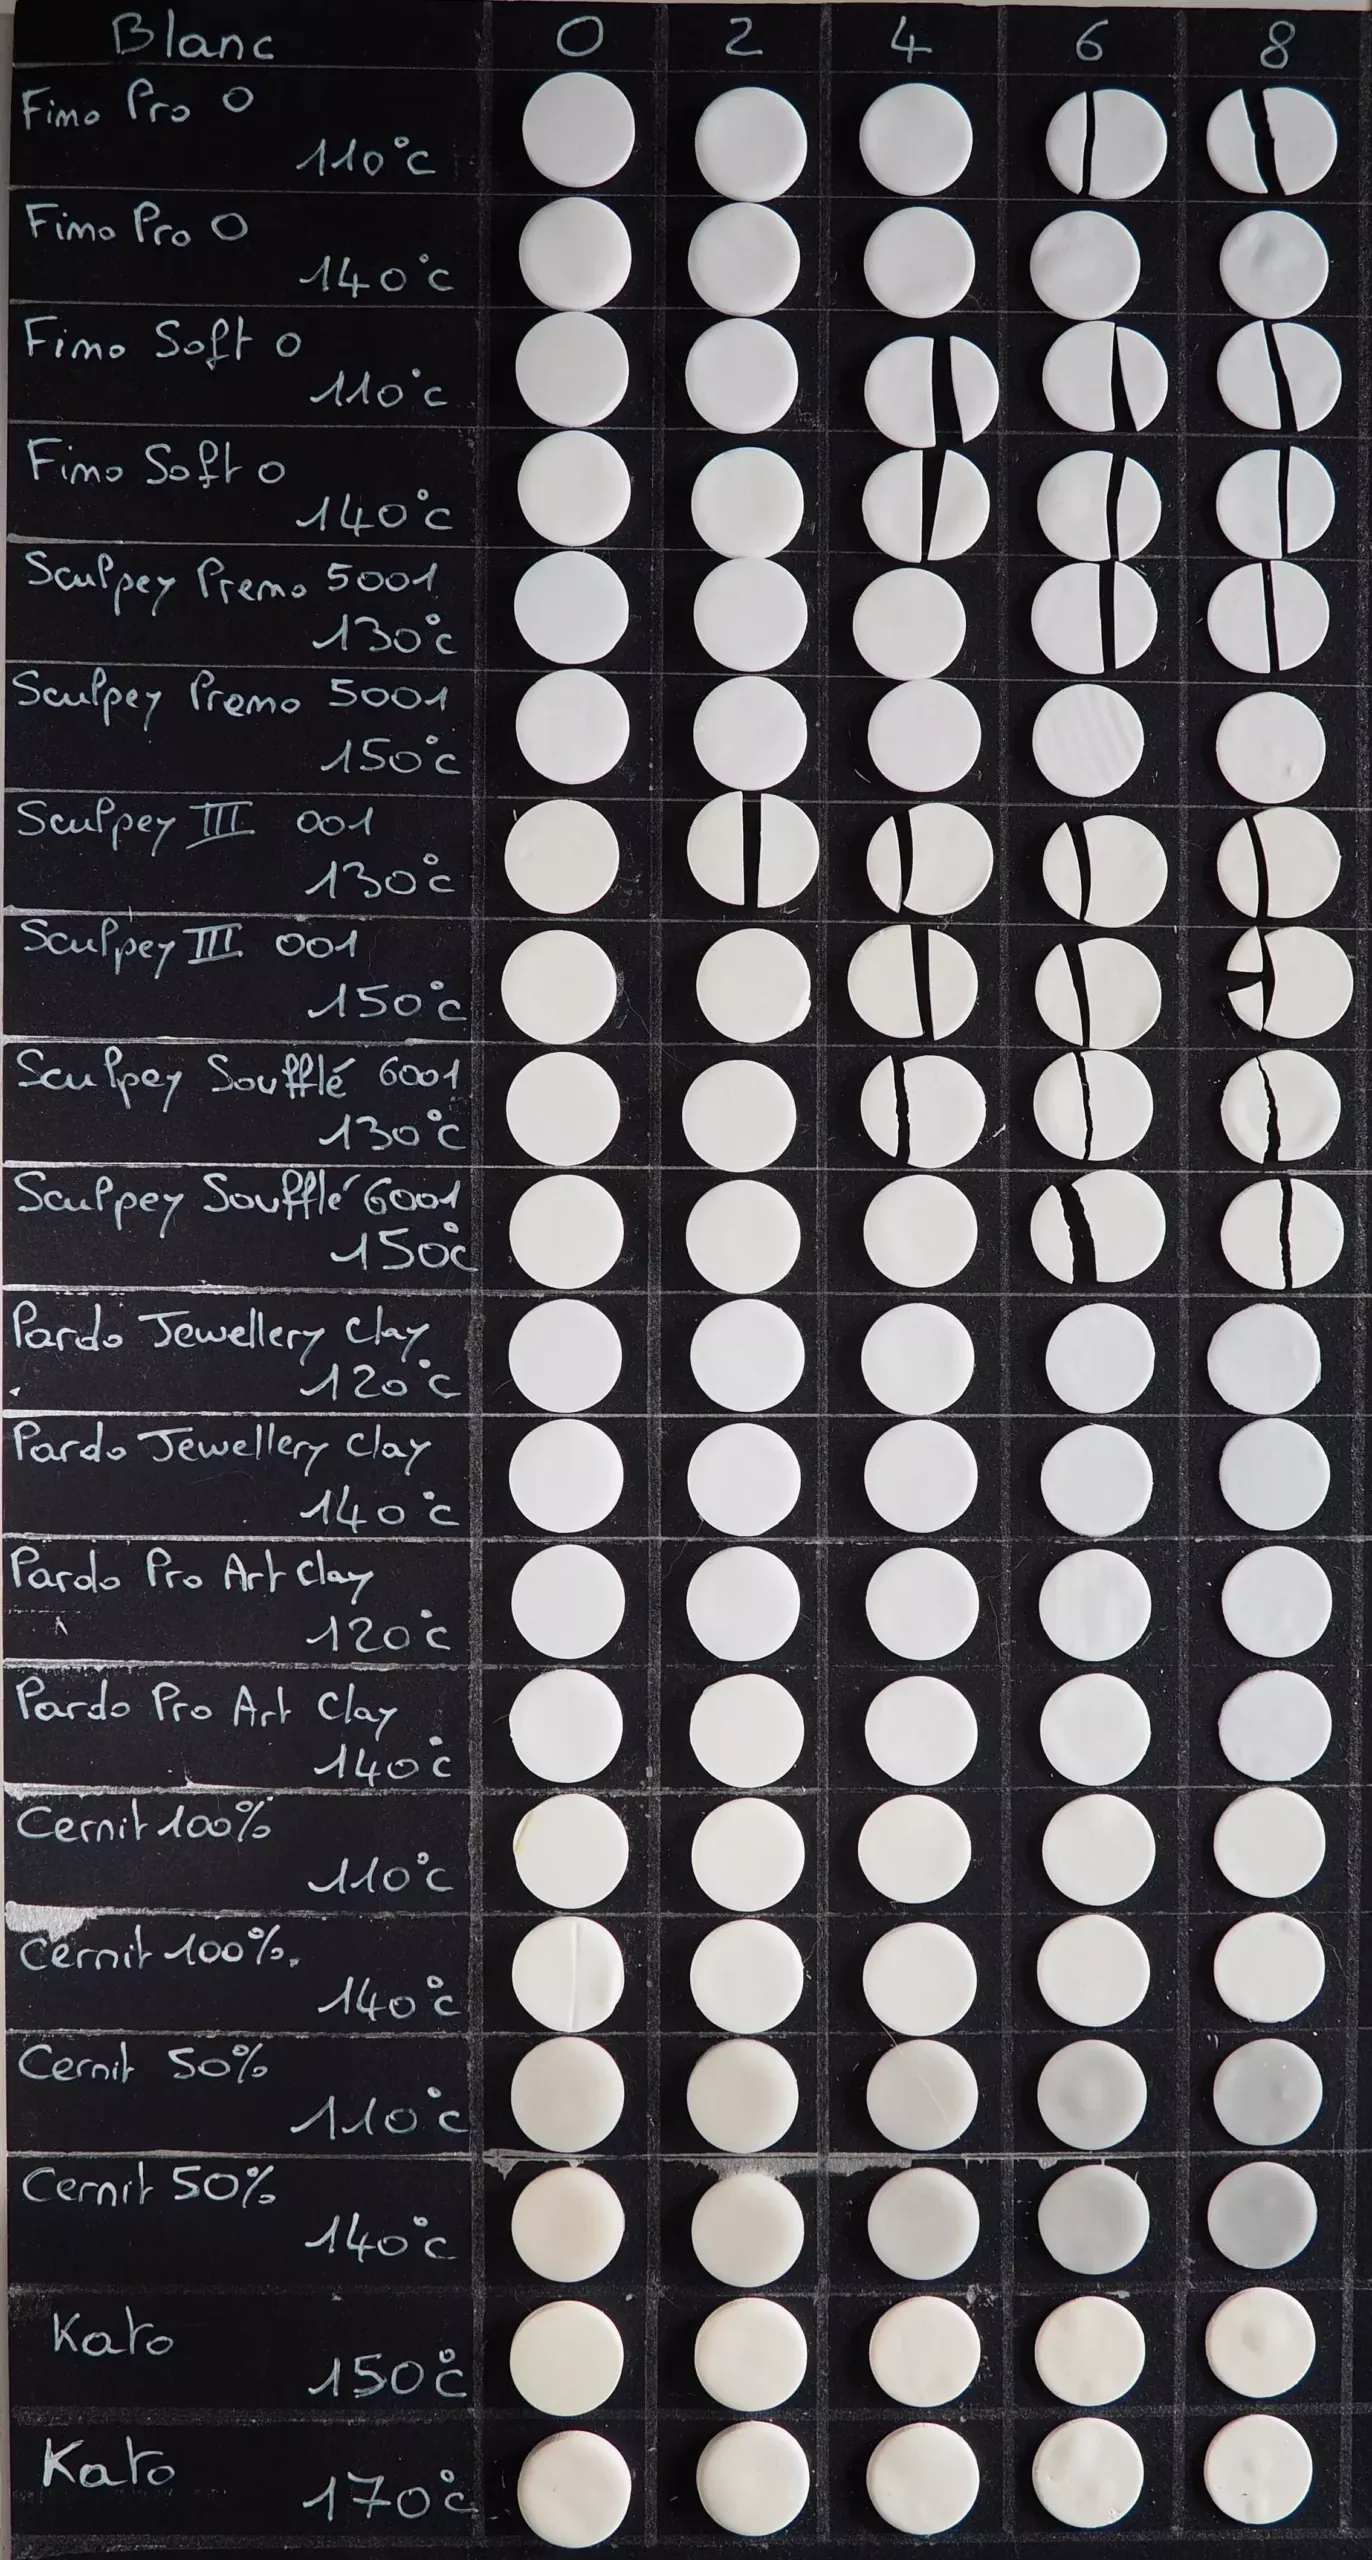 Blanc 0 2 4 6 8
Fimo Pro 0
110°c
Fimo Pro 0
140°c
Fimo Soft 0
110°c
Fimo Soft 0
140°c
Sculpey Premo 5001
130°c
Sculpey Premo 5001
150°c
Sculpey III 001
130°c
Sculpey III 001
150°c
Sculpey Soufflé 6001
130°c
Sculpey Soufflé 6001
150°c
Pardo Jewellery Clay
120°c
Pardo Jewellery Clay
140°c
Pardo Pro Art Clay
120°c
Pardo Pro Art Clay
140°c
Cernit 100%
110°c
Cernit 100%.
140°c
Cernit 50%
110°c
Cernit 50%
140°c
Kato
150°c
Kato
170°c